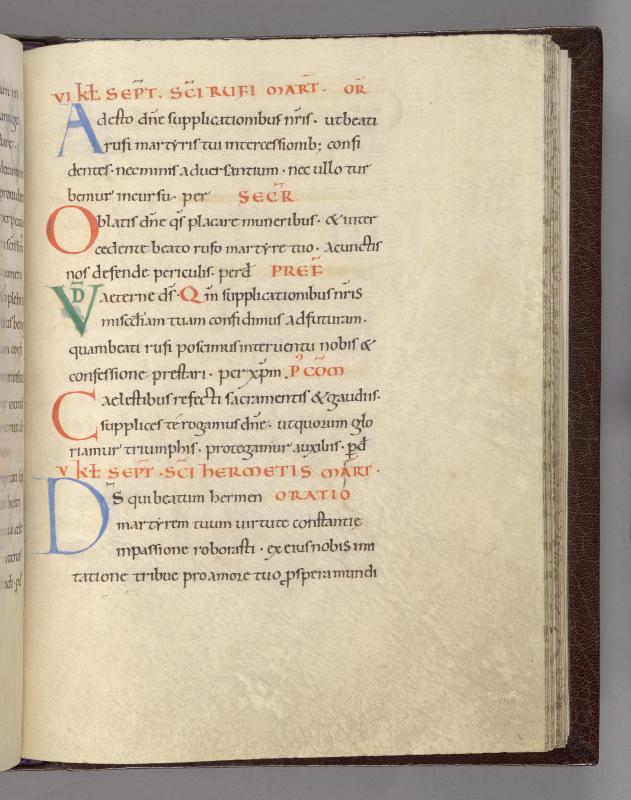 VI KL̄ SEPT̄. SC̄I RUFI MART̄. OR̄
Adesto dn̄e supplicationibus nr̄is. ut beati
rufi martyris tui intercessionib; confi
dentes. nec minis aduersantium. nec ullo tur
bemur incursu. per SECR̄
Oblatis dn̄e qs̄ placare muneribus. & inter
cedente beato rufo martyre tuo. a cunctis
nos defende periculis. per d̄ PREF̄
VD̄ aeterne ds̄. Qm̄ supplicationibus nr̄is
miscd̄iam tuam confidimus adfuturam.
quam beati rufi poscimus interuentu nobis &
confessione prestari. per xp̄m. P̄ COM̄
Caelestibus refecti sacramentis & gaudiis.
supplices te rogamus dn̄e. ut quorum glo
riamur triumphis. protegamur auxiliis. p̄ d̄
V KL̄ SEPT̄. SC̄I HERMETIS MART̄.
DS̄ qui beatum hermen ORATIO
martyrem tuum uirtute constantie
in passione roborasti. ex eius nobis imi
tatione tribue pro amore tuo ꝓspera mundi